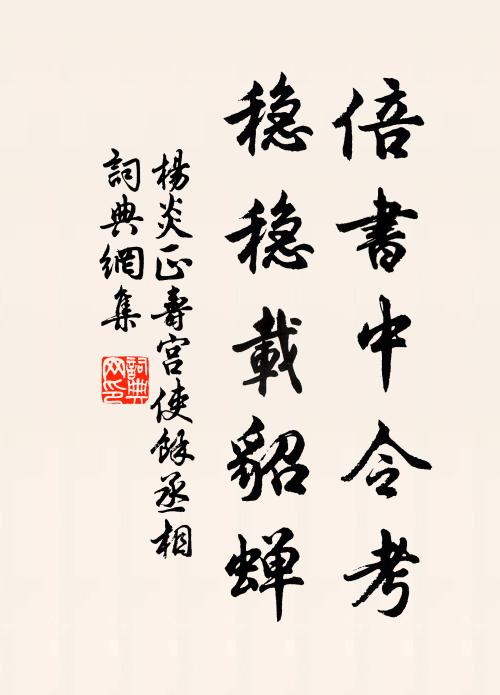 倍書中令考
穏穏載貂蝉
楊炎正壽宮使餘丞相
詞典網集
詞典网印